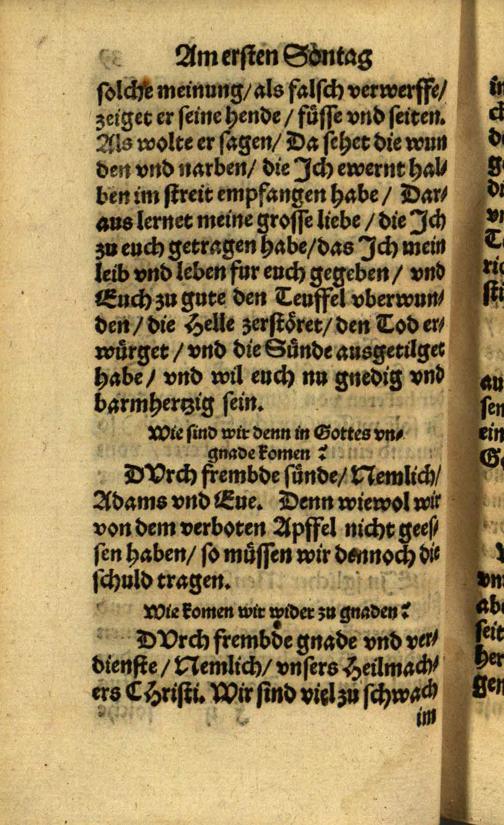 Am ersten Sontag
solche meinung/ als falsch verwerffe/
zeiget er seine hende / füsse vnd seiten.
Als wolte er sagen/ Da sehet die wun
den vnd narben/ die Jch ewernt hal/
ben im streit empfangen habe / Dar/
aus lernet meine grosse liebe / die Jch
zu euch getragen habe/das Jch mein
leib vnd leben fur euch gegeben / vnd
Euch zu gute den Teuffel vberwun/
den / die Helle zerstöret/ den Tod er/
würget / vnd die Sünde ausgetilget
habe / vnd wil euch nu gnedig vnd
barmhertzig sein.
Wie sind wir denn in Gottes vn/
gnade komen ?
DVrch frembde sünde/ Nemlich/
Adams vnd Eue. Denn wiewol wir
von dem verboten Apffel nicht gees/
sen haben/ so müssen wir dennoch die
schuld tragen.
Wie komen wir wider zu gnaden ?
DVrch frembde gnade vnd ver/
dienste / Nemlich/ vnsers Heilmach/
ers CHristi. Wir sind viel zu schwach
im